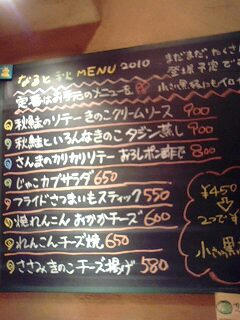 なると秋 MENU 2010
定番はお手元のメニューを
まだまだ、たくさん
登場予定で
小さい黒板にもイロ
秋鮭のソテー きのこクリームソース 900
秋鮭といろんなきのこ タジン蒸し 900
さんまのカリカリソテー おろしポン酢で 800
じゃこカブサラダ 650
フライドさつまいもスティック 550
焼れんこん おかかチーズ 600
れんこんチーズ焼 650
ささみきのこチーズ揚げ 580
¥450
2つで
小さい黒